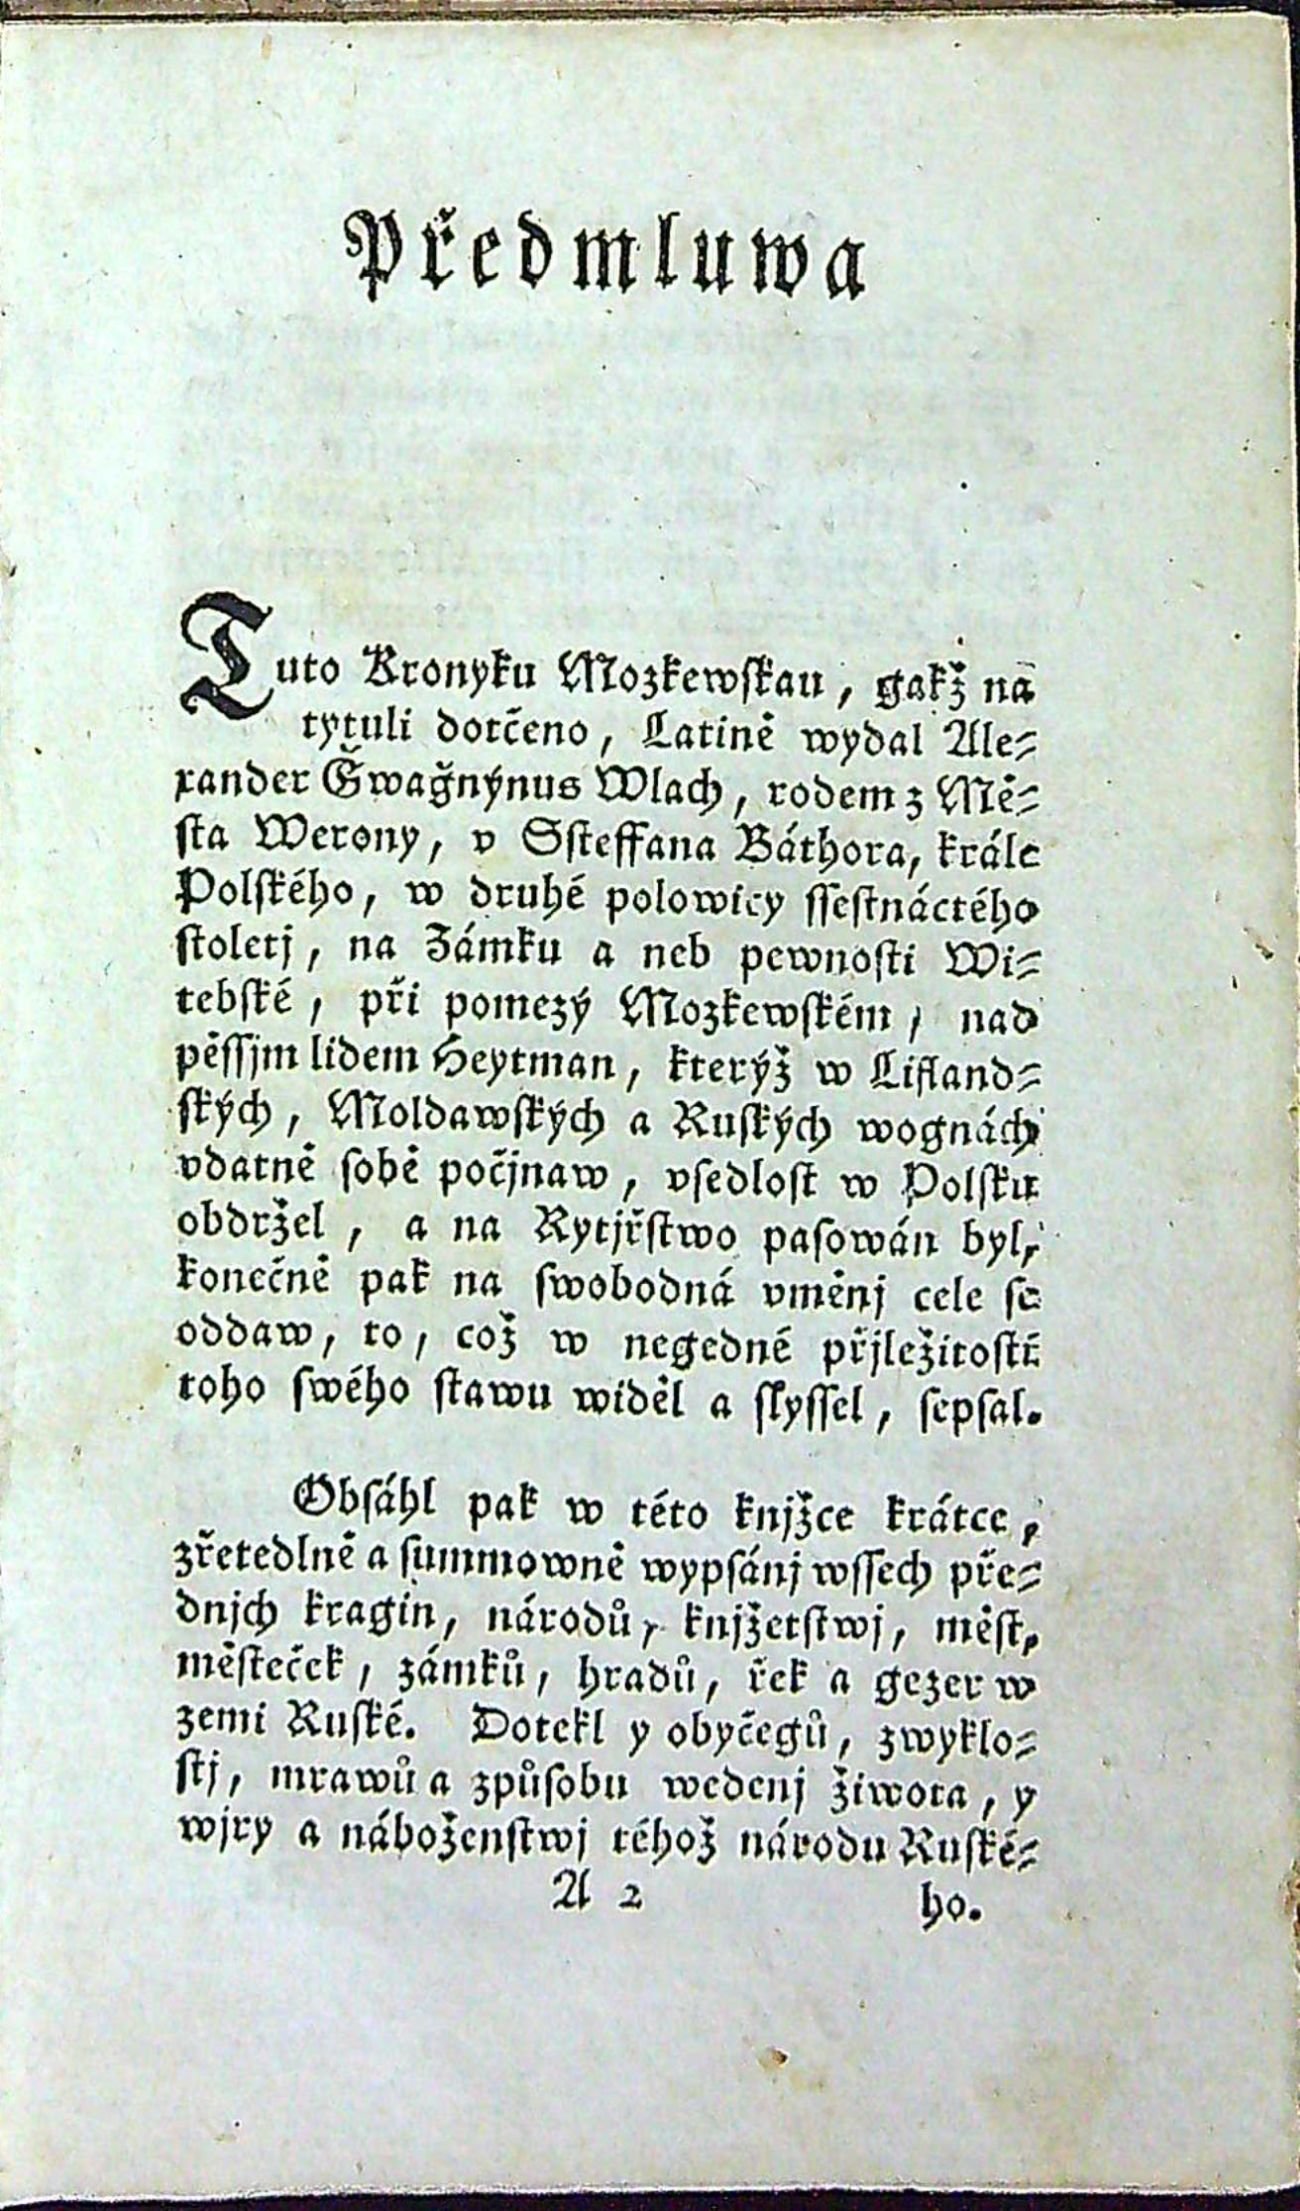 Předmluwa
Tuto Kronyku Mozkewskau, gakž na
tytuli dotčeno, Latině wydal Ale-
xander Ǧwaǧnýnus Wlach, rodem z Mě-
sta Werony, v Ssteffana Báthora, krále
Polského, w druhé polowicy ssestnáctého
stoletj, na Zámku a neb pewnosti Wi-
tebské, při pomezý Mozkewském, nad
pěssjm lidem Heytman, kterýž w Lifland-
ských, Moldawských a Ruských wognách
vdatně sobě počjnaw, vsedlost w Polsku
obdržel, a na Rytjřstwo pasowán byl,
konečně pak na swobodná vměnj cele se
oddaw, to, což w negedné přjležitosti
toho swého stawu widěl a slyssel, sepsal.
Obsáhl pak w této knjžce krátce,
zřetedlně a summowně wypsánj wssech pře-
dnjch kragin, národů, knjžetstwj, měst,
městeček, zámků, hradů, řek a gezer w
zemi Ruské. Dotekl y obyčegů, zwyklo-
stj, mrawů a způsobu wedenj žiwota, y
wjry a náboženstwj téhož národu Ruské-
A 2 ho.